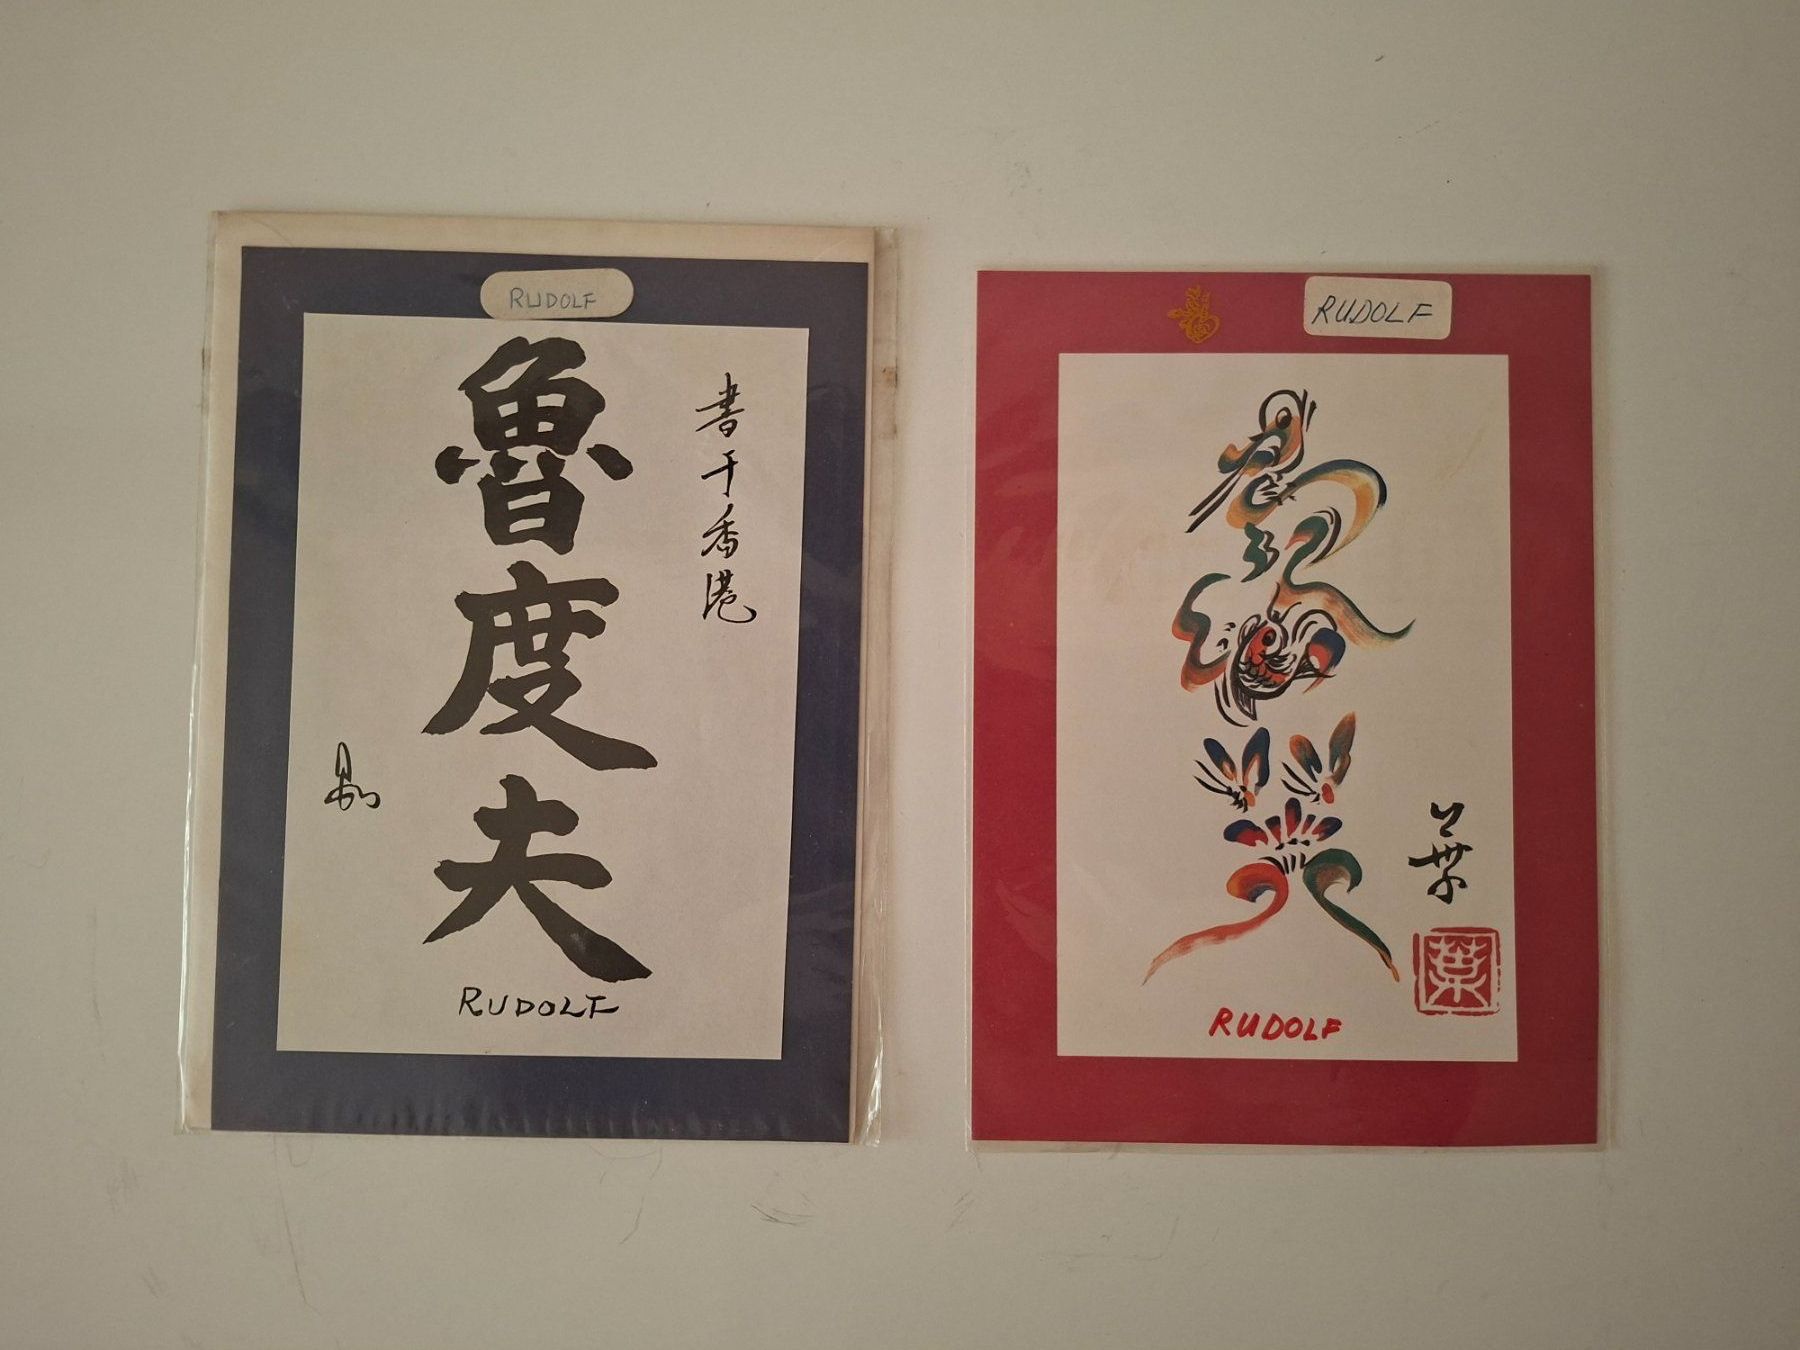 RUDOLF
魯度夫
書于香港
RUDOLF
RUDOLF
葉
葉
RUDOLF